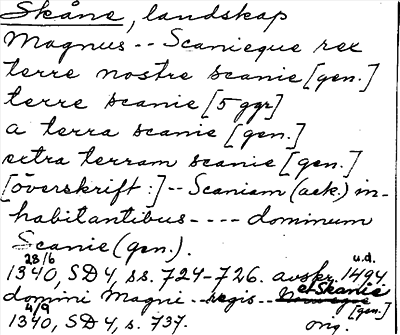 Skåne, landskap
Magnus -- Scanieque rex
terre nostre scanie [gen.]
terre scanie [5 ggr]
a terra scanie [gen.]
extra terram scanie [gen.]
[överskrift:] -- Scaniam (ack.) in-
habitantibus ---- dominum
Scanie (gen.).
28/6 u.d.
1340, SD4, ss. 724-726. avskr. 1494
domini Magni -- regis -- et Skanie
4/9 [gen.]
1340, SD4, s. 737. orig.